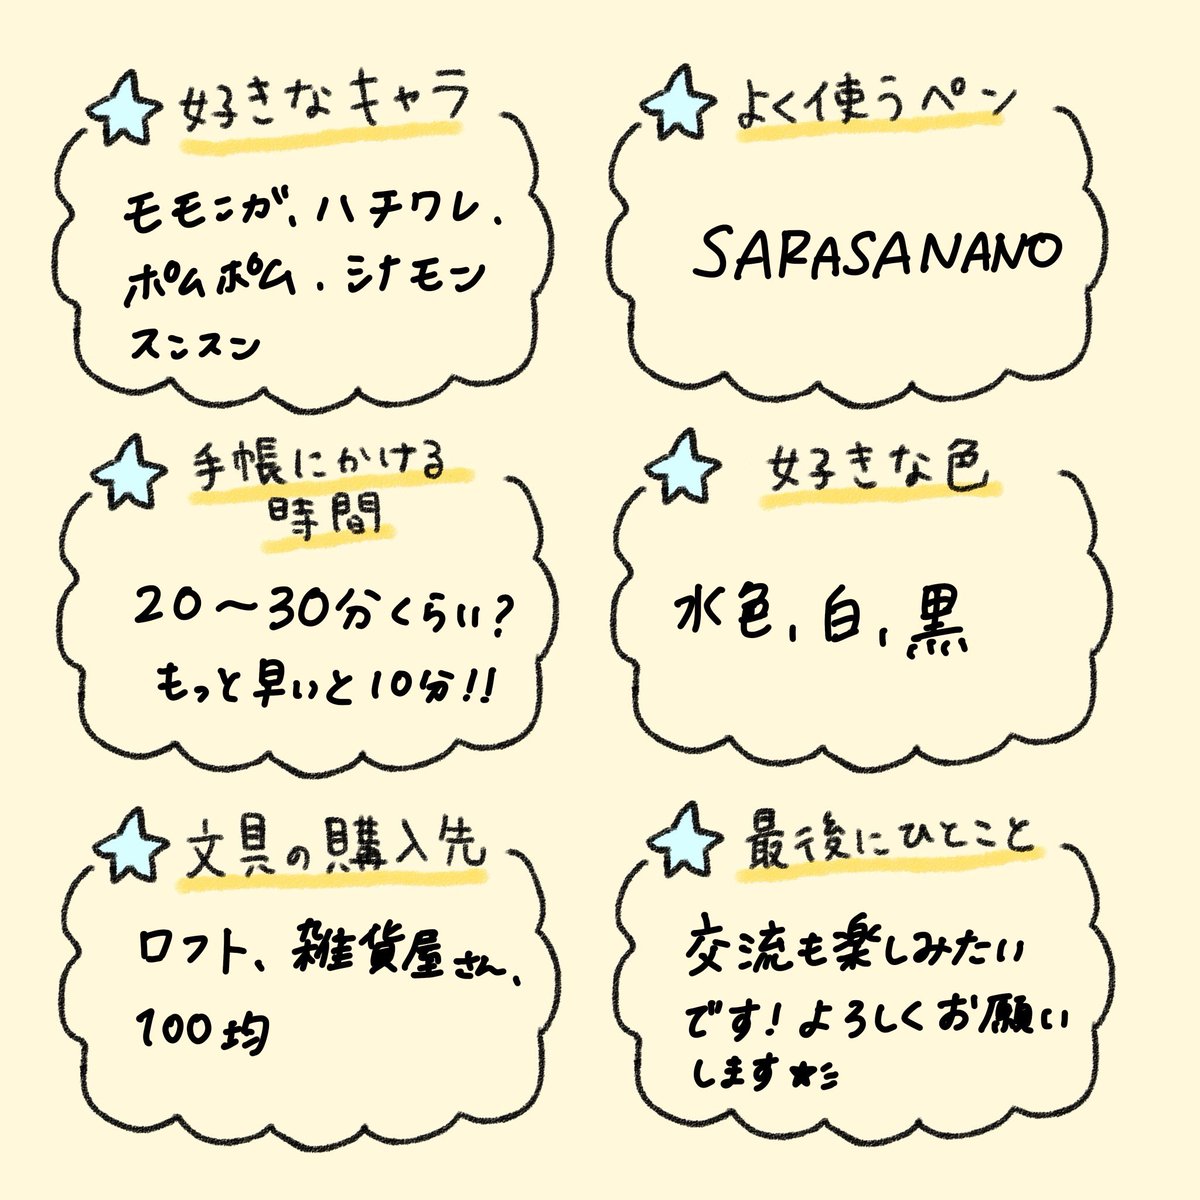 好きなキャラ
モモンガ、ハチワレ、
ポムポム、シナモン
スンスン
よく使うペン
SARASA NANO
手帳にかける
時間
20〜30分くらい?
もっと早いと10分!!
好きな色
水色、白、黒
文具の購入先
ロフト、雑貨屋さん、
100均
最後にひとこと
交流も楽しみたい
です!よろしくお願い
します★彡